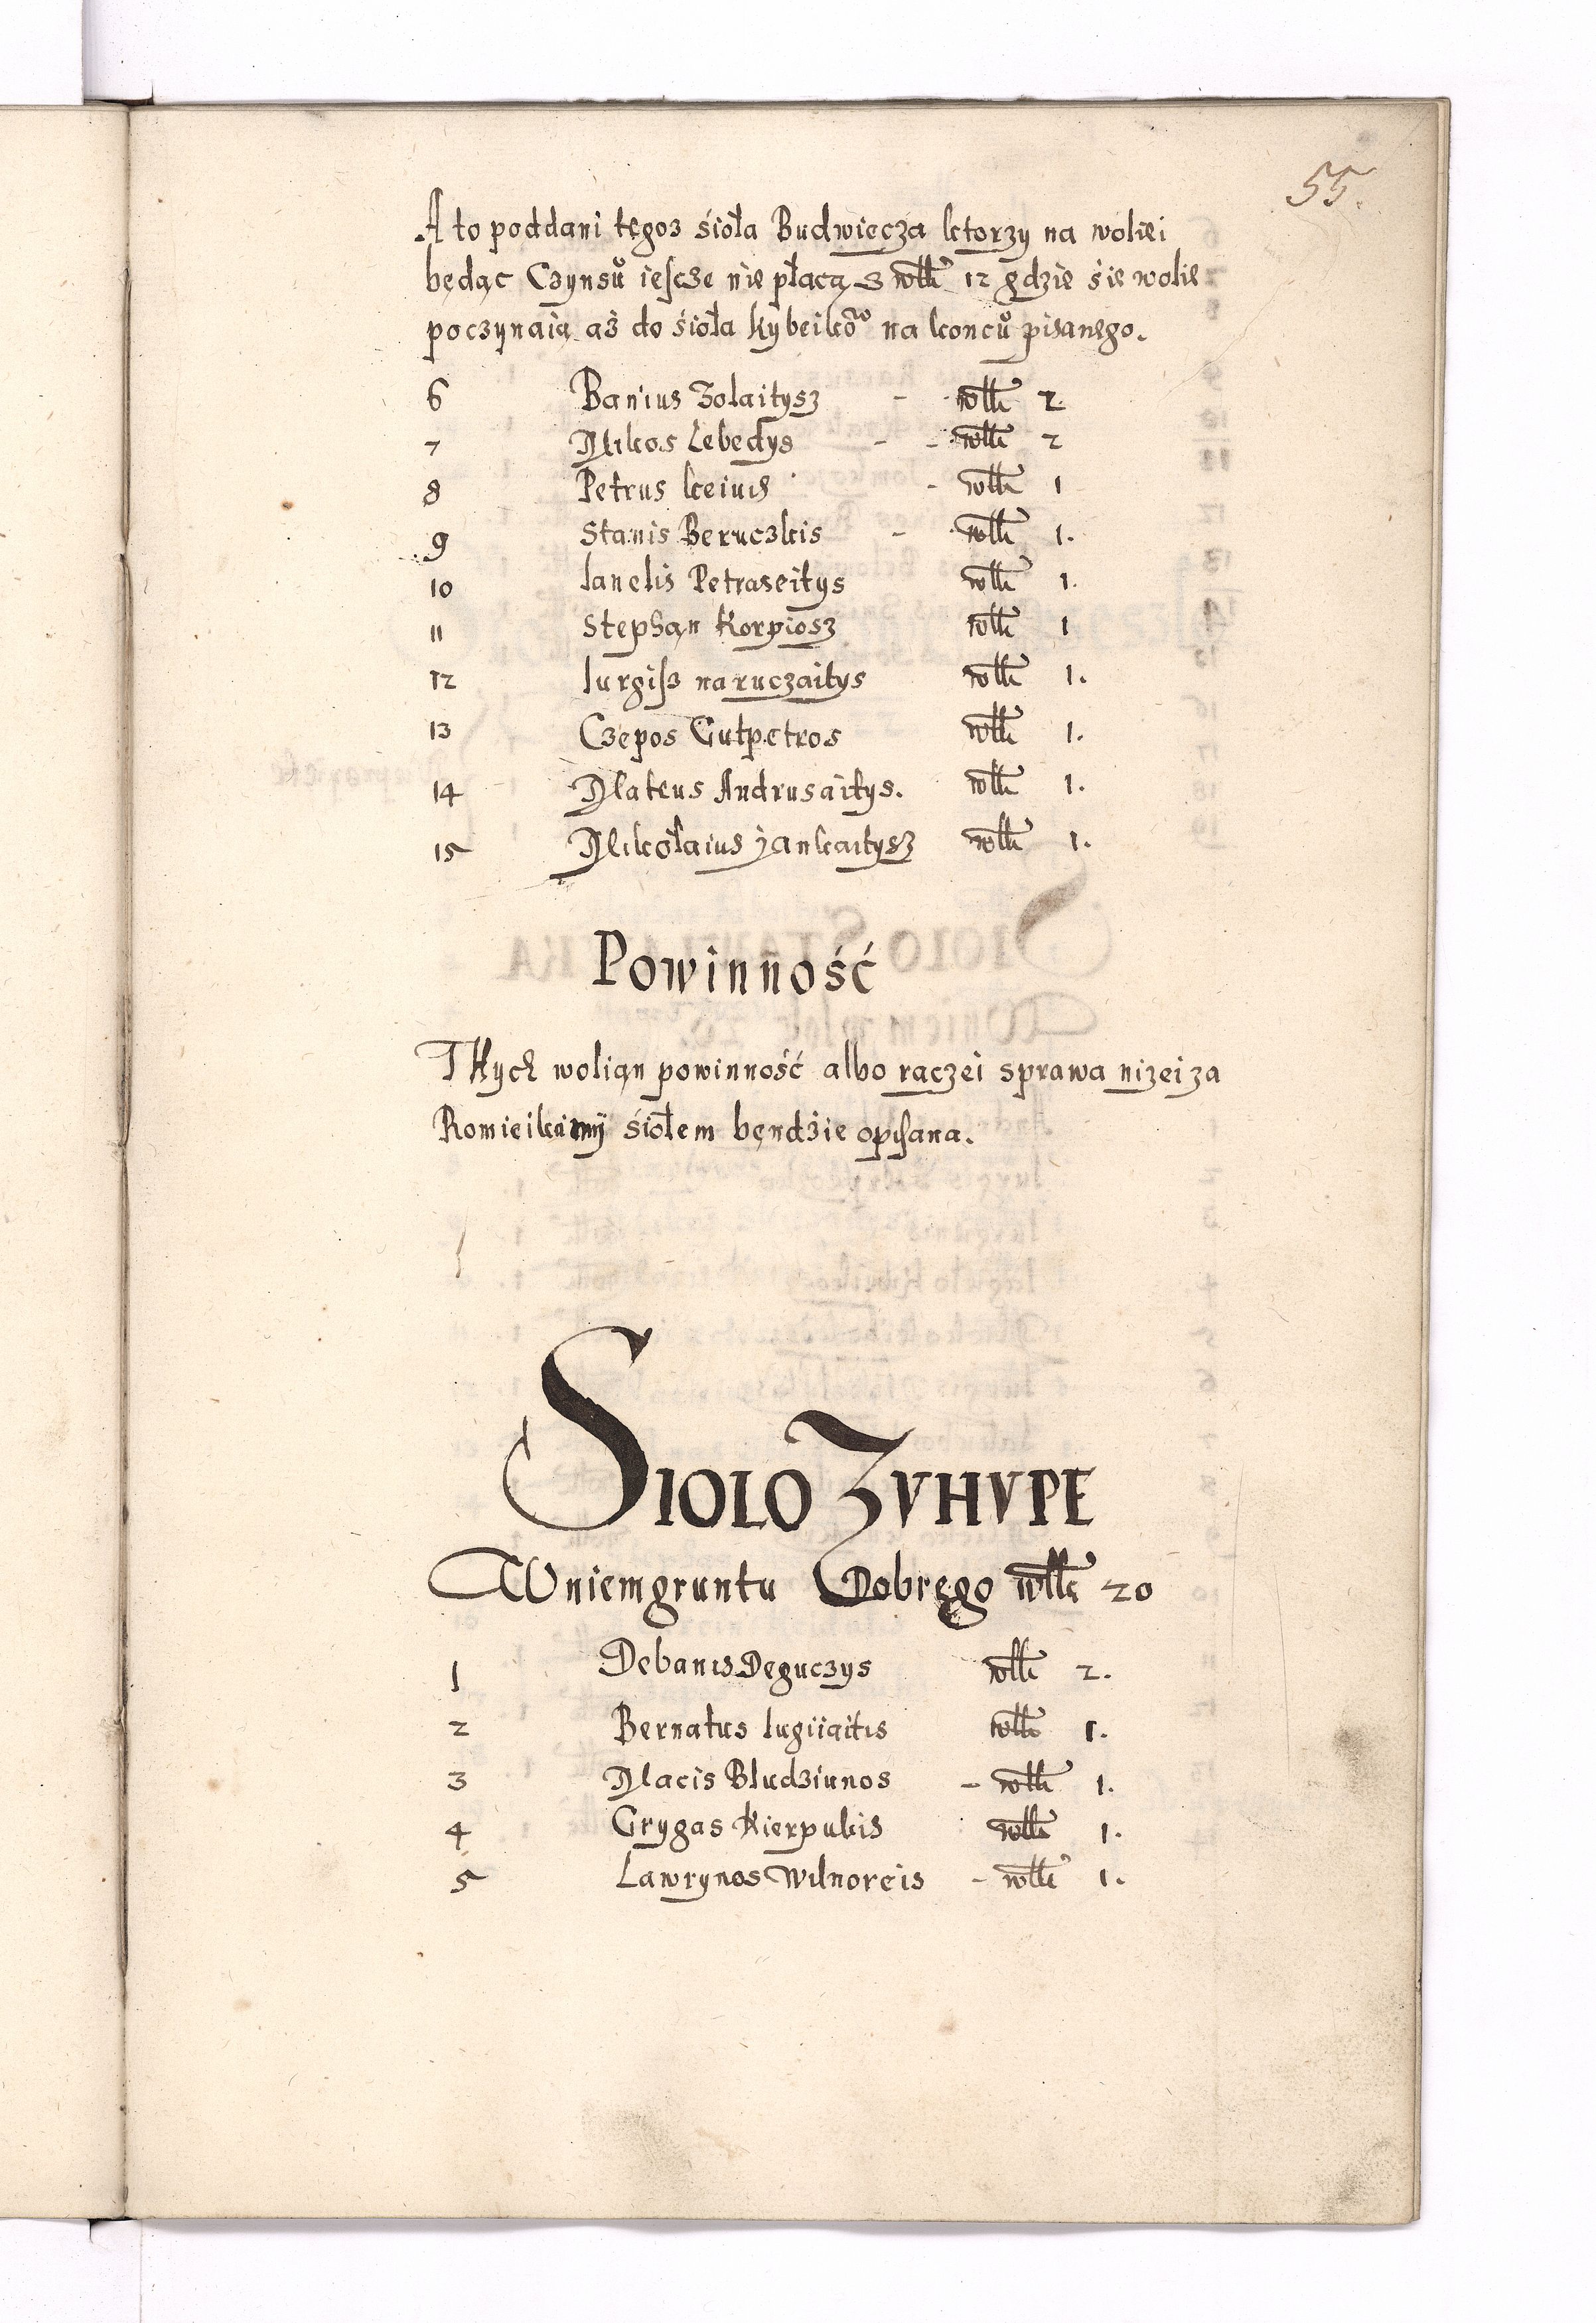 55.
A to poddani tęgoz śioła Budwiecza ktorzy na woliei
będąc Czynsů iescze nie płacą z włk 12 gdzie się wolie
poczynaią aż do śioła kybeiko na konců pisanego.
6 Banius Zolaitysz - włk 2.
7 Mikos Lebedys - - włk 2
8 Petrus kieius - włk 1
9 Stanis Beruczkis - włk 1.
10 Ianelis Petraseitys włk 1.
11 Stephan Korpiosz włk 1
12 Iurgisz naruczaitys włk 1.
13 Czepos Gutpetros włk 1.
14 Mateus Andrusaitys. włk 1.
15 Mikołaius jankaitysz włk 1.
Powinność
Thych wolian powinność albo raczei sprawa nizei za
Romieikamÿ śiołem bęndzie opisana.
SIOLO ZVHVPE
W niem gruntu Dobrego włk 20
1 Debanis Deguczys włk 2.
2 Bernatus Iugiiaitis włk 1.
3 Macis Bludziunos - włk 1.
4 Grygas Kierpukis włk 1.
5 Lawrynos Wilnoreis - włk 1.